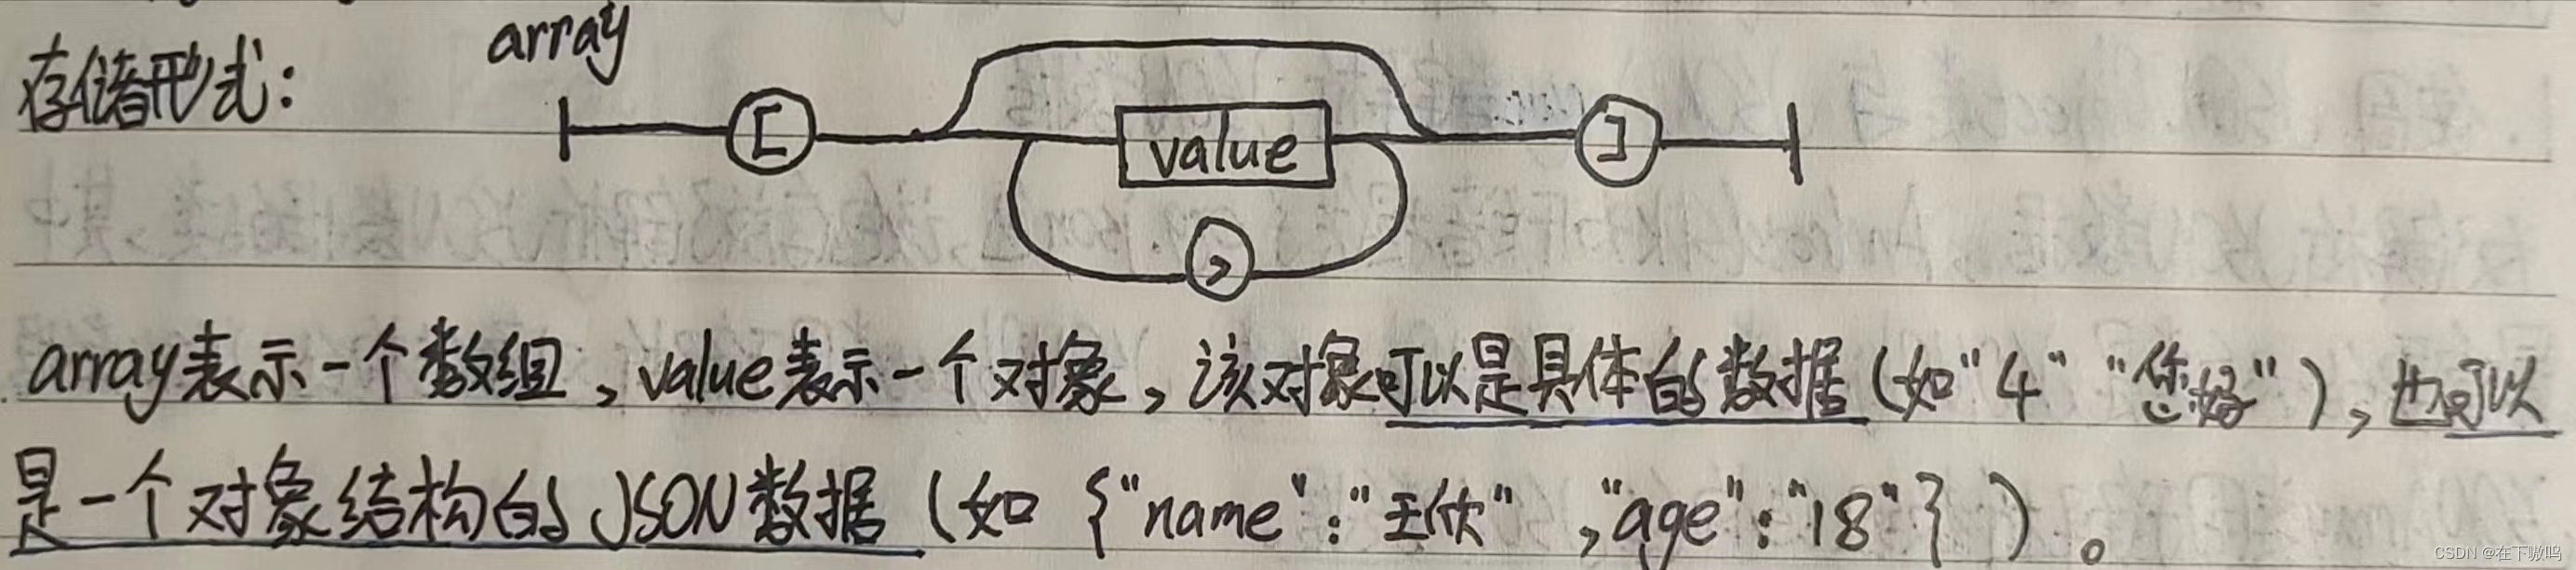 array
存储形式：
[ value ]
,
array表示一个数组，value表示一个对象，该对象可以是具体的数据（如"4" "您好"），也可以
是一个对象结构的JSON数据（如 {"name"："王欣"，"age"："18"}）。
CSDN @在下嗷呜